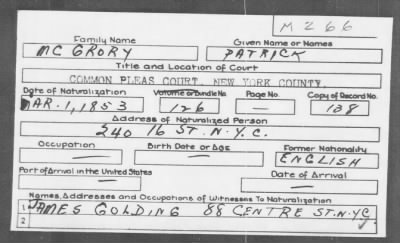 M266
Family Name Given Name or Names
MC GRORY PATRICK
Title and Location of Court
COMMON PLEAS COURT, NEW YORK COUNTY
Date of Naturalization Volume or Bundle No. Page No. Copy of Record No.
MAR. 1, 1853 126 — 128
Address of Naturalized Person
240 16 ST. N.Y.C.
Occupation Birth Date or Age Former Nationality
— — ENGLISH
Port of Arrival in the United States Date of Arrival
— —
Names, Addresses and Occupations of Witnesses To Naturalization
1 JAMES GOLDING 88 CENTRE ST. N.Y.C.
2